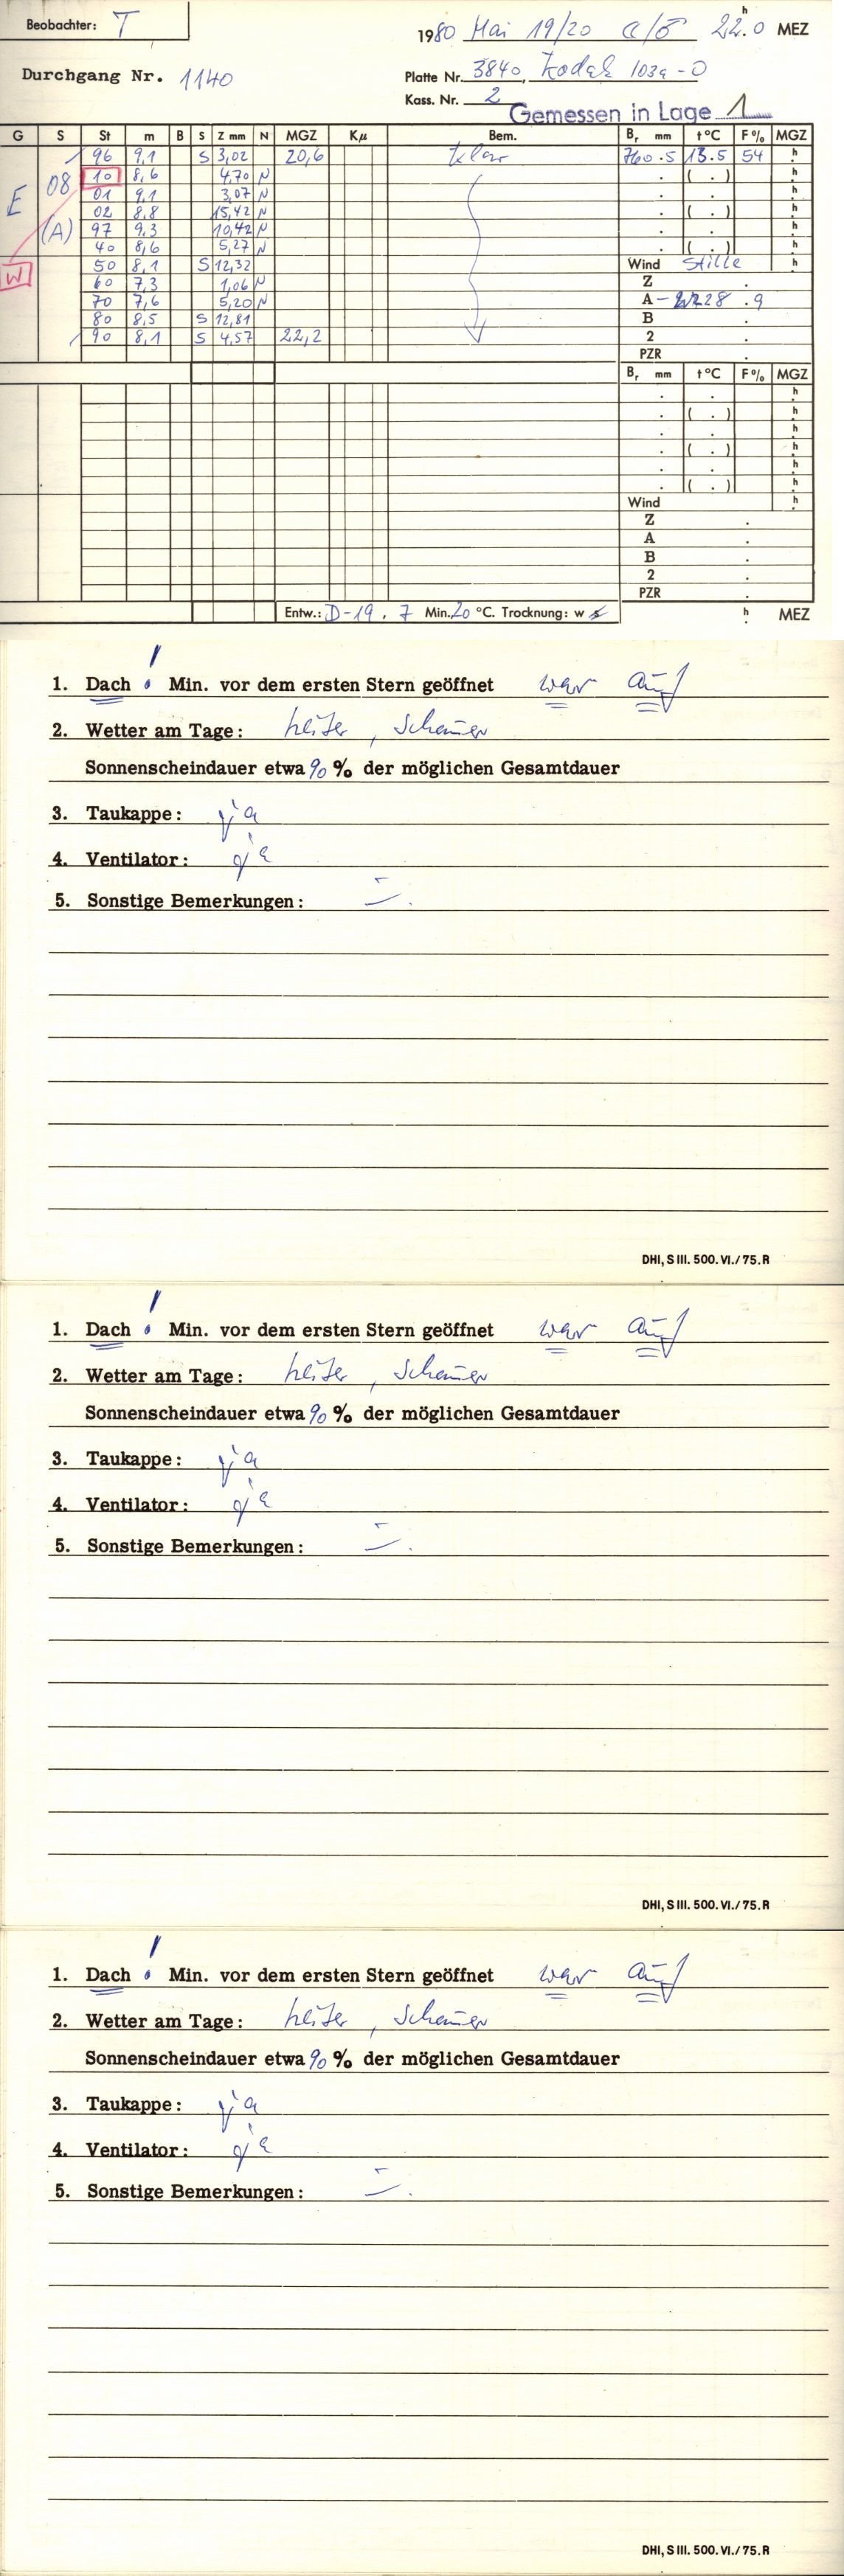 Beobachter: T
1980 Mai 19/20 22.0 h MEZ
Durchgang Nr. 1140
Platte Nr. 3840, Kodak 103a-O
Kass. Nr. 2
Gemessen in Lage 1
G S St m B S Z mm N MGZ Kμ Bem. Br mm t°C F% MGZ
96 9,1 S 3,02 20,6 klar 760.5 13.5 54 h
E 08 10 8,6 4,70 N ( . ) h
01 9,1 3,07 N h
02 8,8 15,42 N ( . ) h
(A) 97 9,3 10,42 N h
40 8,6 5,27 N ( . ) h
W 50 8,1 S 12,32 Wind Stille h
60 7,3 1,06 N Z .
70 7,6 5,20 N A 28 .9
80 8,5 S 12,81 B .
90 8,1 S 4,57 22,2 2 .
PZR .
Br mm t°C F% MGZ
. . h
. ( . ) h
. . h
. ( . ) h
. . h
. ( . ) h
Wind h
Z .
A .
B .
2 .
PZR .
Entw.: D-19, 7 Min. 20 °C. Trocknung: w h MEZ
1. Dach Min. vor dem ersten Stern geöffnet war auf
2. Wetter am Tage: heiter, Schauer
Sonnenscheindauer etwa 90 % der möglichen Gesamtdauer
3. Taukappe: ja
4. Ventilator: ja
5. Sonstige Bemerkungen: -.
DHI, S III. 500. VI./75. R
1. Dach Min. vor dem ersten Stern geöffnet war auf
2. Wetter am Tage: heiter, Schauer
Sonnenscheindauer etwa 90 % der möglichen Gesamtdauer
3. Taukappe: ja
4. Ventilator: ja
5. Sonstige Bemerkungen: -.
DHI, S III. 500. VI./75. R
1. Dach Min. vor dem ersten Stern geöffnet war auf
2. Wetter am Tage: heiter, Schauer
Sonnenscheindauer etwa 90 % der möglichen Gesamtdauer
3. Taukappe: ja
4. Ventilator: ja
5. Sonstige Bemerkungen: -.
DHI, S III. 500. VI./75. R